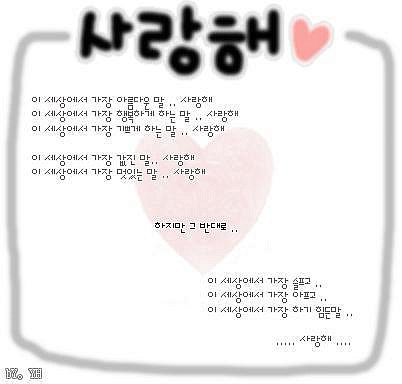 사랑해
이 세상에서 가장 아름다운 말 .. 사랑해
이 세상에서 가장 행복하게 하는 말 .. 사랑해
이 세상에서 가장 기쁘게 하는 말 .. 사랑해
이 세상에서 가장 값진 말.. 사랑해
이 세상에서 가장 멋있는 말 .. 사랑해
하지만 그 반대로 ..
이 세상에서 가장 슬프고 ..
이 세상에서 가장 아프고 ..
이 세상에서 가장 하기 힘든말 ..
..... 사랑해 ....
by. YH